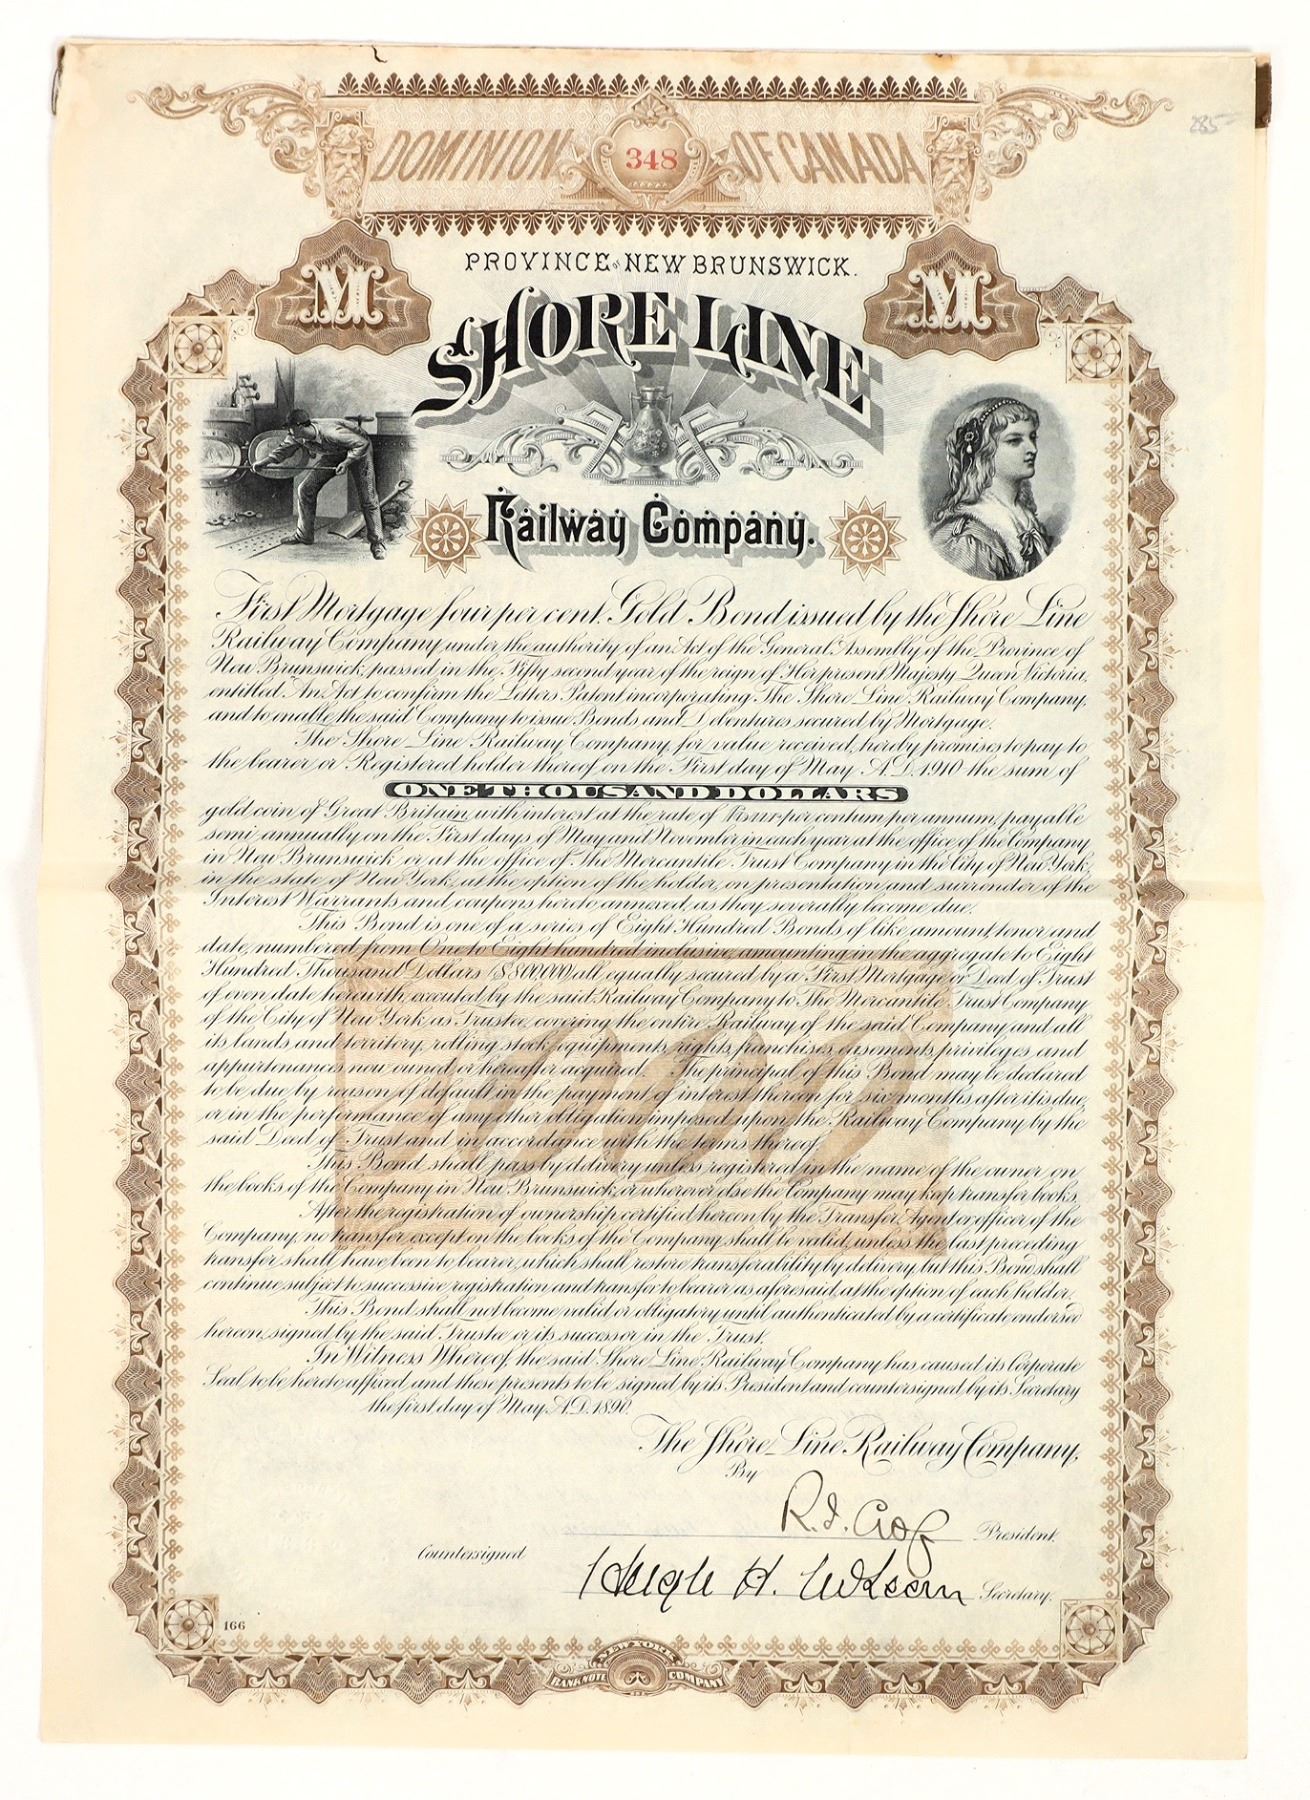 285-
DOMINION 348 OF CANADA
PROVINCE OF NEW BRUNSWICK.
M M
SHORE LINE
Railway Company.
First Mortgage four per cent. Gold Bond issued by the Shore Line
Railway Company under the authority of an Act of the General Assembly of the Province of
New Brunswick, passed in the Fifty second year of the reign of Her present Majesty Queen Victoria,
entitled An Act to confirm the Letters Patent incorporating The Shore Line Railway Company,
and to enable the said Company to issue Bonds and Debentures secured by Mortgage.
The Shore Line Railway Company, for value received, hereby promises to pay to
the bearer or Registered holder thereof on the First day of May A.D. 1910 the sum of
ONE THOUSAND DOLLARS
gold coin of Great Britain, with interest at the rate of Four per centum per annum, payable
semi-annually on the First days of May and November, in each year at the office of the Company
in New Brunswick or at the office of The Mercantile Trust Company in the City of New York,
in the state of New York, at the option of the holder, on presentation and surrender of the
Interest Warrants and coupons hereto annexed, as they severally become due.
This Bond is one of a series of Eight Hundred Bonds of like amount, tenor and
date, numbered from One to Eight hundred inclusive, amounting in the aggregate to Eight
Hundred Thousand Dollars ($800,000) all equally secured by a First Mortgage or Deed of Trust
of even date herewith, executed by the said Railway Company to The Mercantile Trust Company
of the City of New York as Trustee, covering the entire Railway of the said Company and all
its lands and territory, rolling stock, equipments, rights, franchises, easements, privileges, and
appurtenances now owned or hereafter acquired. The principal of this Bond may be declared
to be due by reason of default in the payment of interest thereon for six months after it is due,
or in the performance of any other obligation imposed upon the Railway Company by the
said Deed of Trust and in accordance with the terms thereof.
This Bond shall pass by delivery unless registered in the name of the owner on
the books of the Company in New Brunswick, or wherever else the Company may keep transfer books.
After the registration of ownership certified hereon by the Transfer Agent or officer of the
Company, no transfer except on the books of the Company shall be valid, unless the last preceding
transfer shall have been to bearer, which shall restore transferability by delivery, but this Bond shall
continue subject to successive registration and transfer to bearer as aforesaid, at the option of each holder.
This Bond shall not become valid or obligatory until authenticated by a certificate endorsed
hereon, signed by the said Trustee or its successor in the Trust.
In Witness Whereof, the said Shore Line Railway Company has caused its Corporate
Seal, to be hereto affixed, and these presents to be signed by its President and countersigned by its Secretary
the first day of May, A.D. 1890.
The Shore Line Railway Company,
By
President.
Countersigned
Hugh H. Secretary.
166
NEW YORK
BANK NOTE COMPANY